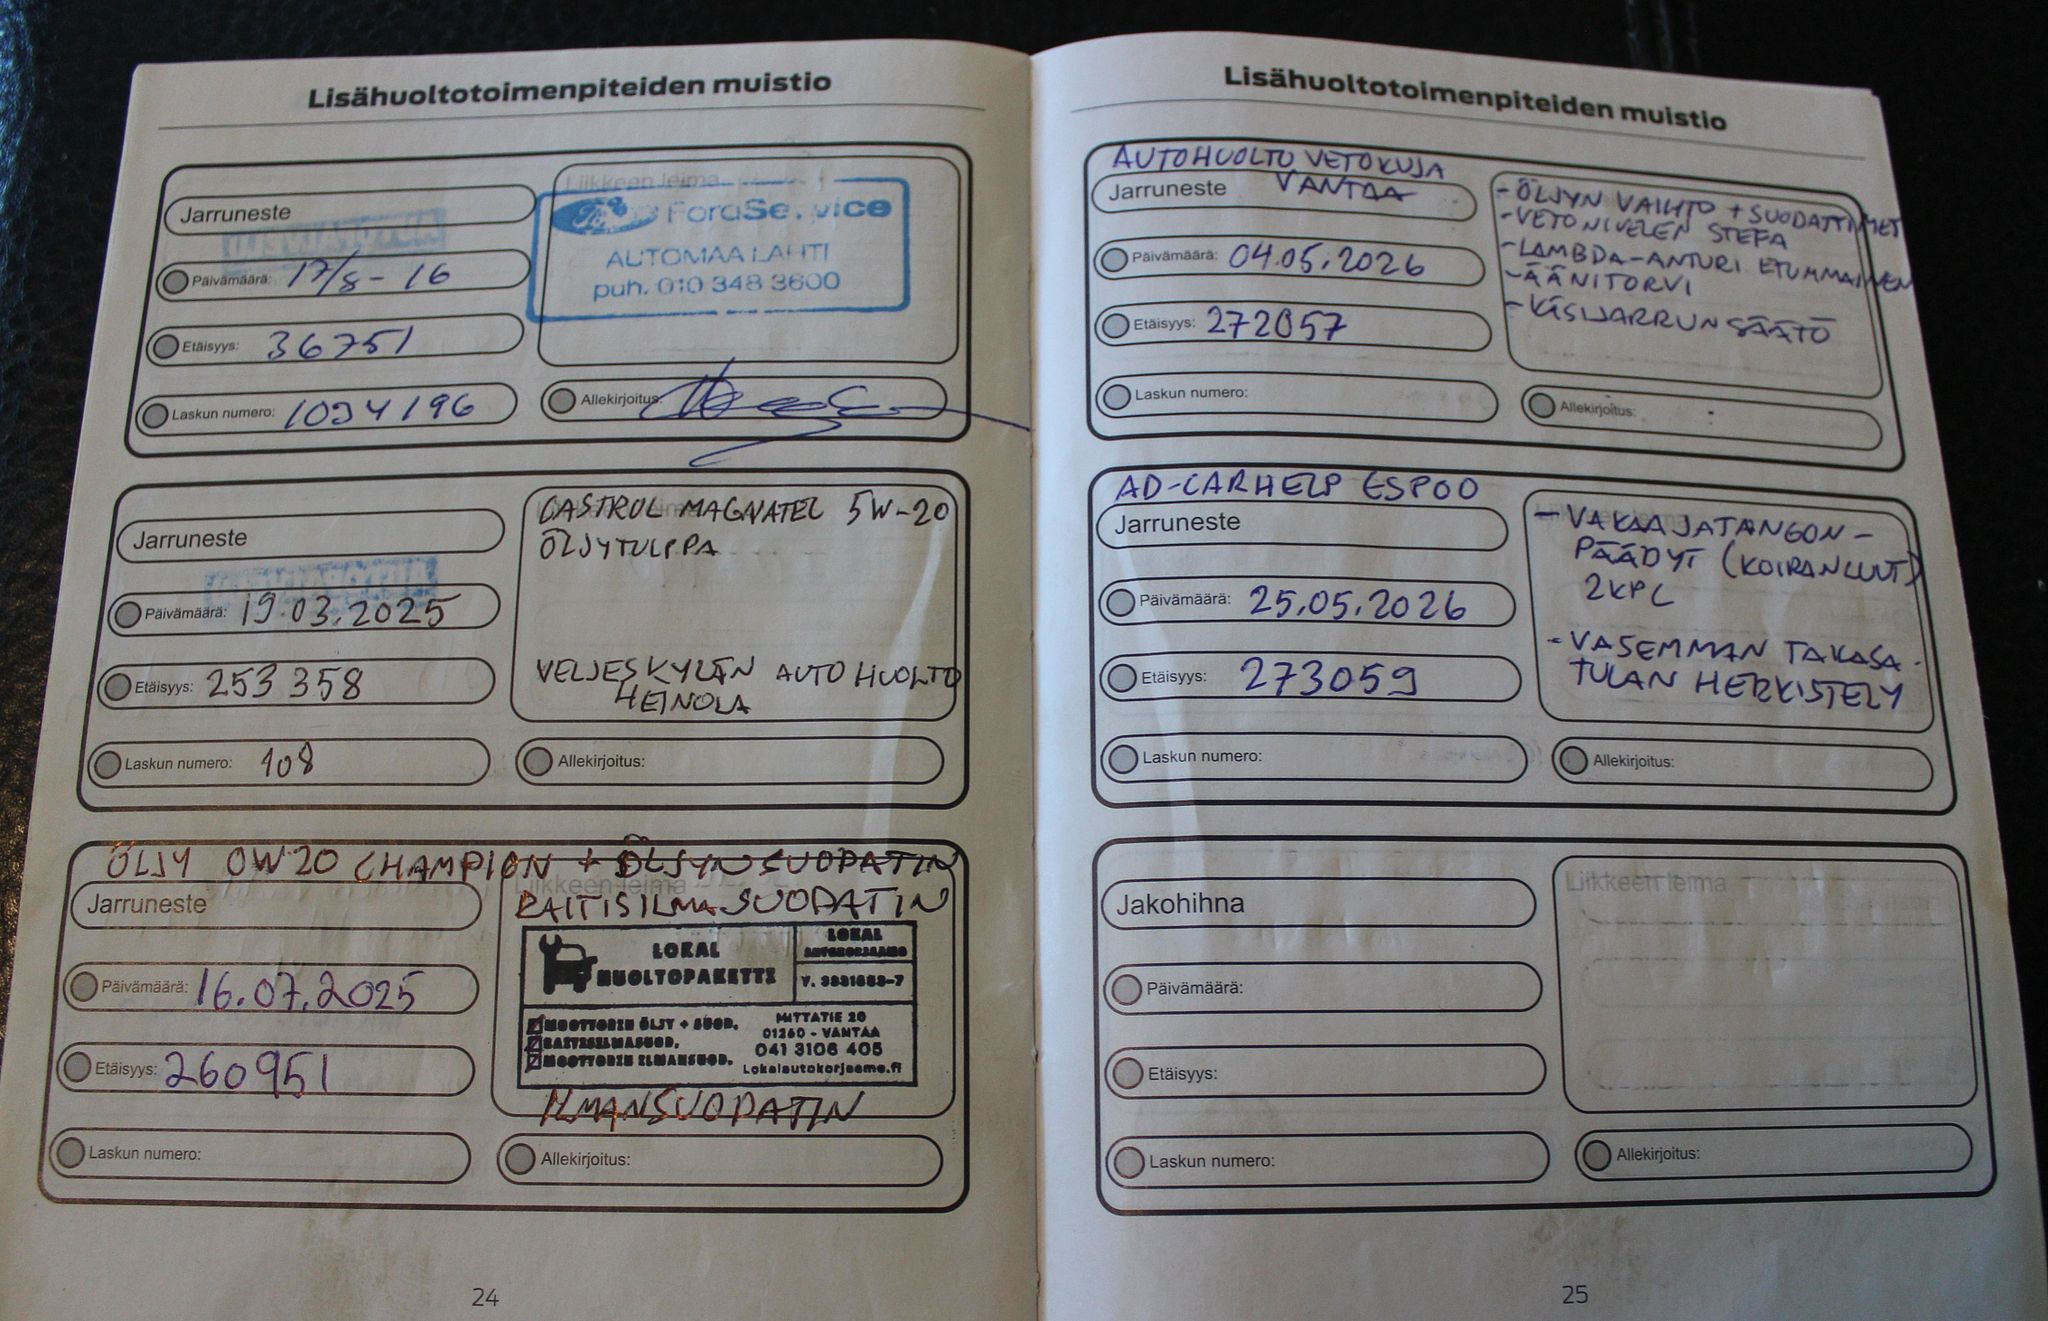 Lisähuoltotoimenpiteiden muistio
Liikkeen leima
Jarruneste
FordService
AUTOMAA LAHTI
puh. 010 348 3600
Päivämäärä: 17/8-16
Etäisyys: 36751
Laskun numero: 1034196
Allekirjoitus:
CASTROL MAGNATEL 5W-20
ÖLJYTULPPA
Jarruneste
Päivämäärä: 19.03.2025
Etäisyys: 253358
VELJESKYLÄN AUTOHUOLTO
HEINOLA
Laskun numero: 108
Allekirjoitus:
ÖLJY 0W20 CHAMPION + ÖLJYNSUODATIN
Liikkeen leima
Jarruneste
RAITISILMASUODATIN
LOKAL
HUOLTOPAKETTI
LOKAL
AUTOKORJAAMO
Y. 3331683-7
Päivämäärä: 16.07.2025
MOOTTORIN ÖLJY + SUOD.
RAITISILMASUOD.
MOOTTORIN ILMANSUOD.
MITTATIE 20
01260 - VANTAA
041 3106 405
Lokalautokorjaamo.fi
Etäisyys: 260951
ILMANSUODATIN
Laskun numero:
Allekirjoitus:
24
Lisähuoltotoimenpiteiden muistio
AUTOHUOLTO VETOKUJA
Jarruneste VANTAA
Päivämäärä: 04.05.2026
Etäisyys: 272057
- ÖLJYN VAIHTO + SUODATTIMET
- VETONIVELEN STEFA
- LAMBDA-ANTURI ETUMMAINEN
- ÄÄNITORVI
- KÄSIJARRUN SÄÄTÖ
Laskun numero:
Allekirjoitus:
AD-CARHELP ESPOO
Jarruneste
Päivämäärä: 25.05.2026
Etäisyys: 273059
- VAKAAJATANGON-
PÄÄDYT (KOIRANLUUT)
2KPL
- VASEMMAN TAKASA-
TULAN HERKISTELY
Laskun numero:
Allekirjoitus:
Jakohihna
Liikkeen leima
Päivämäärä:
Etäisyys:
Laskun numero:
Allekirjoitus:
25